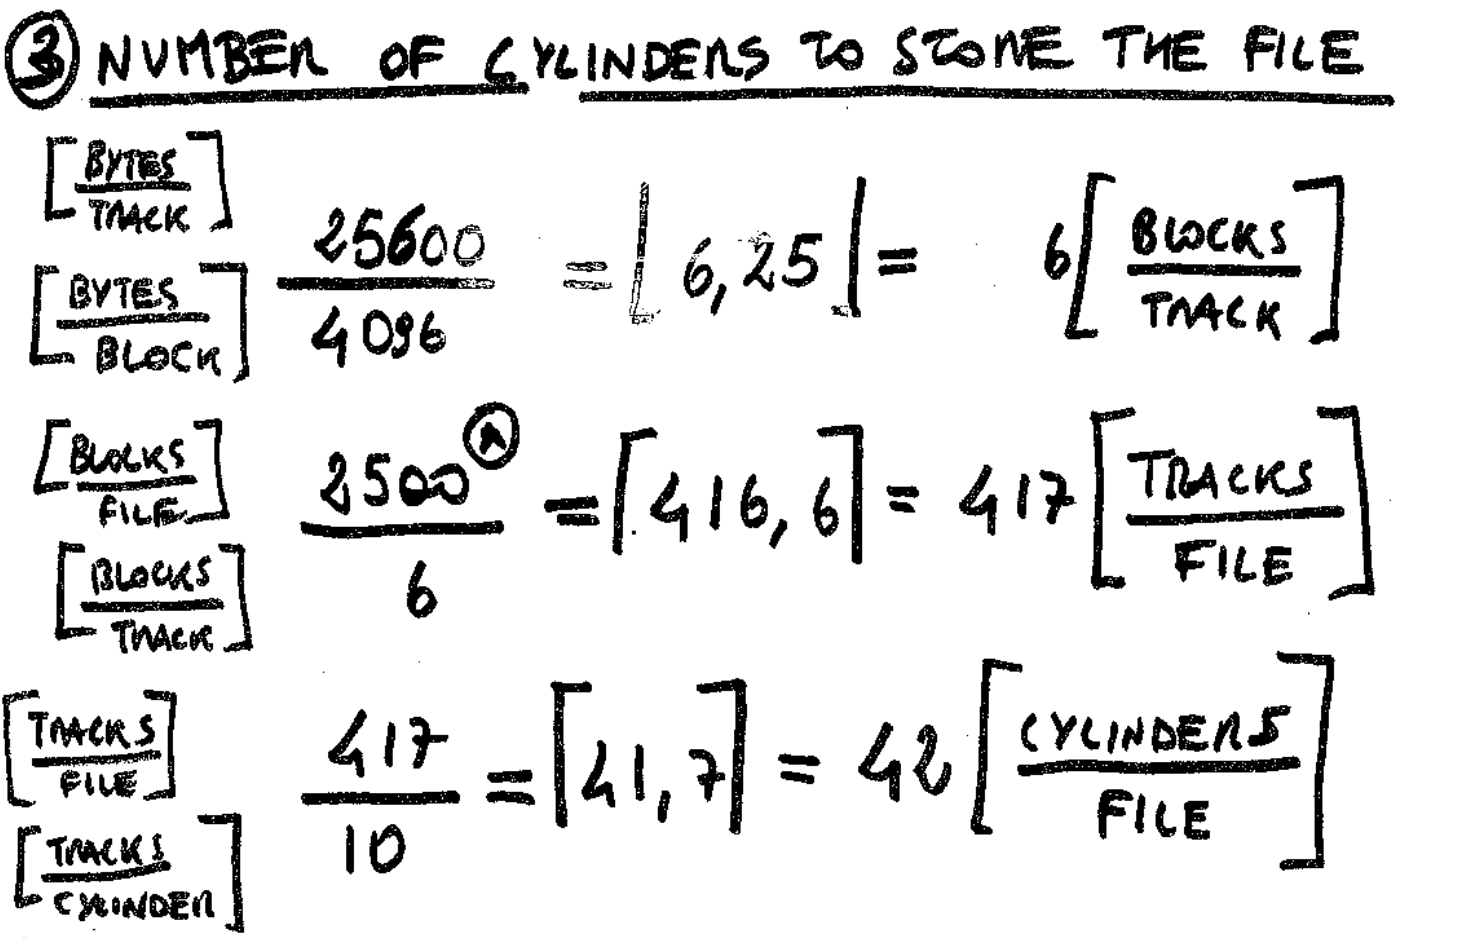 3 NUMBER OF CYLINDERS TO STORE THE FILE
[BYTES / TRACK] / [BYTES / BLOCK] 25600 / 4096 = ⌊6,25⌋ = 6 [BLOCKS / TRACK]
[BLOCKS / FILE] / [BLOCKS / TRACK] 2500 (A) / 6 = ⌈416,6⌉ = 417 [TRACKS / FILE]
[TRACKS / FILE] / [TRACKS / CYLINDER] 417 / 10 = ⌈41,7⌉ = 42 [CYLINDERS / FILE]